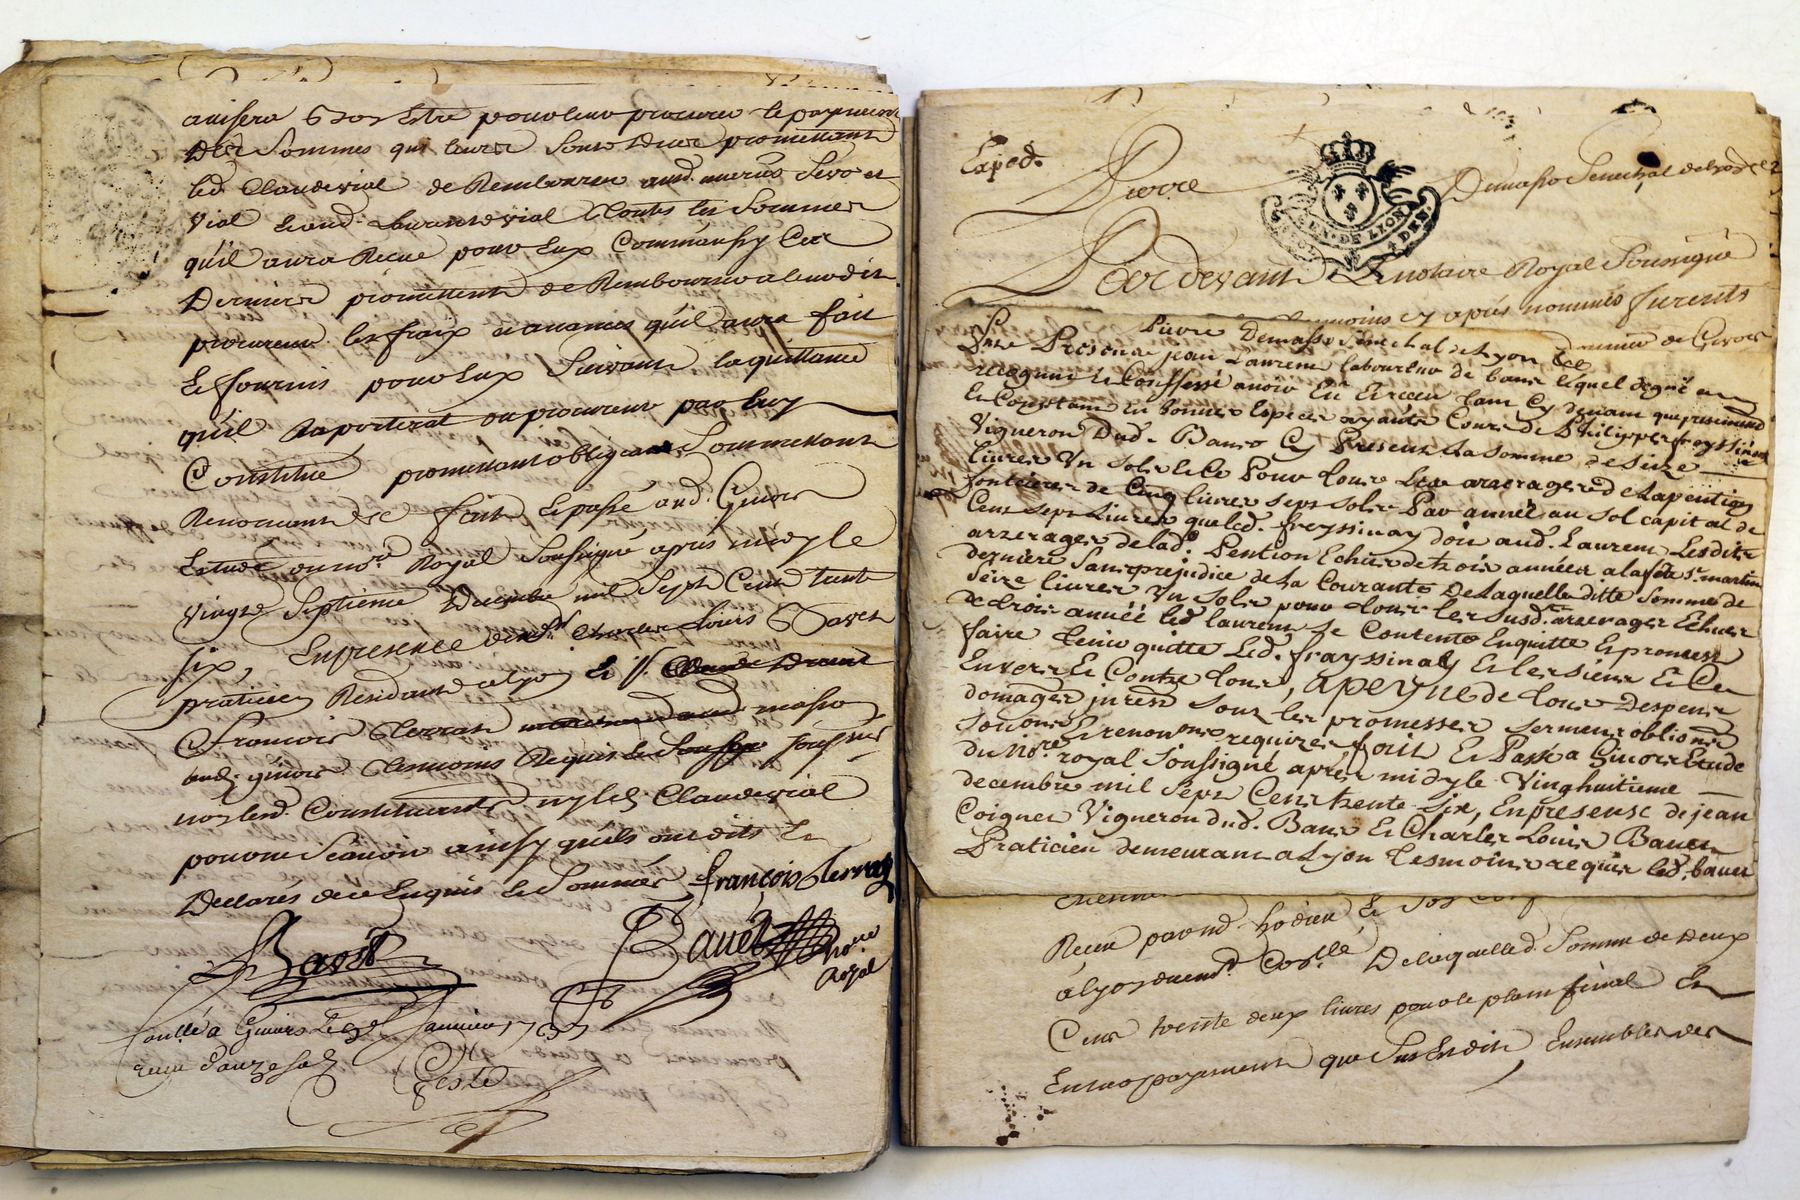 avisera bon Estre pour leur procurer le payement
Des Sommes qui leurs Sont Dues promettant
led. Claude vial de Rembourser aud.
vial Laurant vial toutes les Sommes
qu'il aura Receue pour Eux Comm'aussy Ces
Derniers promettent de Rembourser a leurdit
procureur les fraix et avances qu'il aura fait
Et fournis pour Eux Suivant la quittance
qu'il Raporterat au procureur par luy
Constitué promettant obligeant Soumettant
Renonceant &c fait Et passé aud. Givors
Estude du no.re Royal Soussigné apres midy le
vingt Septieme Decembre mil Sept Cent trente
six, En presence de Charles Louis Bavet
praticien Residant a Lyon Et
François Terrat masson
aud. givors tesmoins Requis Soussignés
non led. Constituants ny led. Claude vial
pour ne Scavoir ainsy qu'ils ont dits Et
Declarés de ce Enquis Et Sommés françois terrat
Bavet no.re Royal
Janvier 1737
Reçu
Exped.
Pierre Demasso Senechal de Lyon
GEN. DE LYON
Par devant Le notaire Royal Soussigné
tesmoins cy après nommés furents
Pierre Demasso Senechal de Lyon
Presence jean Laurent laboureur de bans lequel de gré a
recognu Et Confessé avoir Eu Et receu tant Cy devant que presentement
En Comptant En bonnes Especes ayants Cours de Philippe frayssinay
Vigneron Dud. Bans Cy Present La Somme de Seize
livres Un Sols Et Ce Pour tous Les arrerages de La pention
fonciere de Cinq livres sept Sols Par année au Sol capital de
Cent Sept Livres que led. frayssinay doit aud. Laurent Lesdits
arrerages de lad.e Pention Echus de trois années a la fête St martin
derniere Sans prejudice de La Courante De Laquelle ditte Somme de
Seize livres Un Sols pour tous les susd. arrerages Echus
de trois années led. laurent se Contente En quitte Et promest
faire tenir quitte Led. frayssinay Et les siens Et Ce
Envers Et Contre tous, a peyne de tous Despens
domages Sous les promesses serment obligons
Soumons Et renonons requises fait Et Passé a Givors Etude
du No.re royal Soussigné après midy le Vinghuitieme
decembre mil Sept Cent trente Six, En presense de jean
Coignet Vigneron dud. Bans Et Charles Louis Bavet
Praticien demeurant a Lyon tesmoins requis led. bavet
Receu par
De laquelle d. Somme de Deux
Cent trente deux livres pour le plain final Et
Entier payement que Susendit, Ensembles des